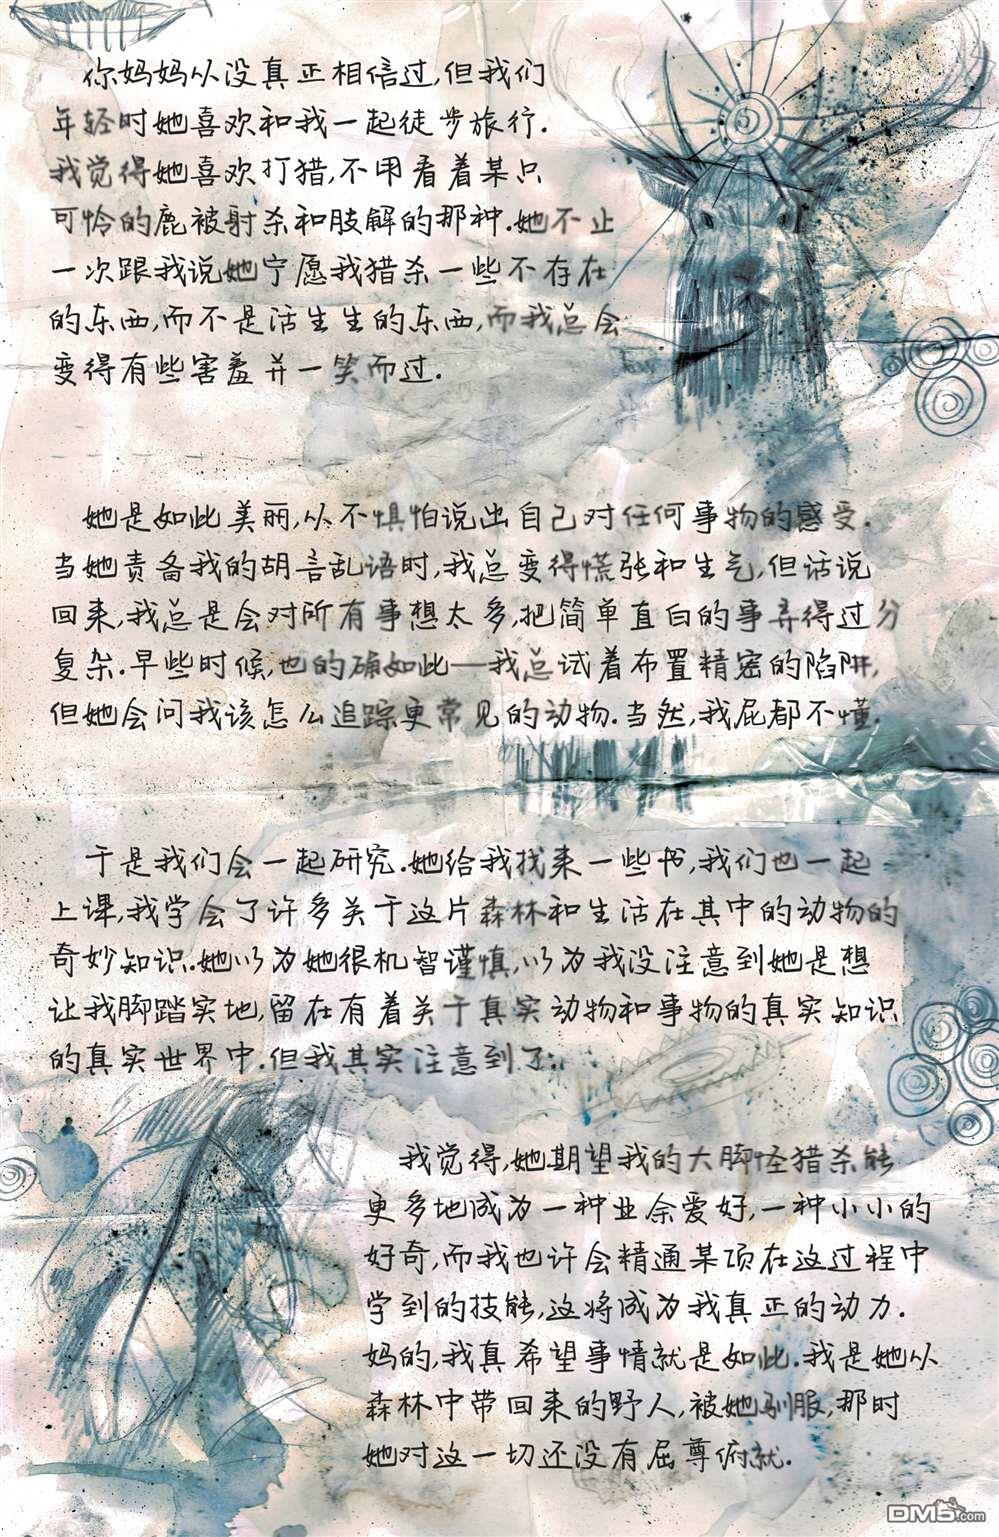 你妈妈从没真正相信过,但我们
年轻时她喜欢和我一起徒步旅行.
我觉得她喜欢打猎,不用看着某只
可怜的鹿被射杀和肢解的那种.她不止
一次跟我说她宁愿我猎杀一些不存在
的东西,而不是活生生的东西,而我总会
变得有些害羞并一笑而过.
她是如此美丽,从不惧怕说出自己对任何事物的感受.
当她责备我的胡言乱语时,我总变得慌张和生气,但话说
回来,我总是会对所有事想太多,把简单直白的事弄得过分
复杂.早些时候,也的确如此——我总试着布置精密的陷阱,
但她会问我该怎么追踪更常见的动物.当然,我屁都不懂.
于是我们会一起研究.她给我找来一些书,我们也一起
上课,我学会了许多关于这片森林和生活在其中的动物的
奇妙知识.她以为她很机智谨慎,以为我没注意到她是想
让我脚踏实地,留在有着关于真实动物和事物的真实知识
的真实世界中.但我其实注意到了.
我觉得,她期望我的大脚怪猎杀能
更多地成为一种业余爱好,一种小小的
好奇,而我也许会精通某项在这过程中
学到的技能,这将成为我真正的动力.
妈的,我真希望事情就是如此.我是她从
森林中带回来的野人,被她驯服,那时
她对这一切还没有屈尊俯就.
DM5.com